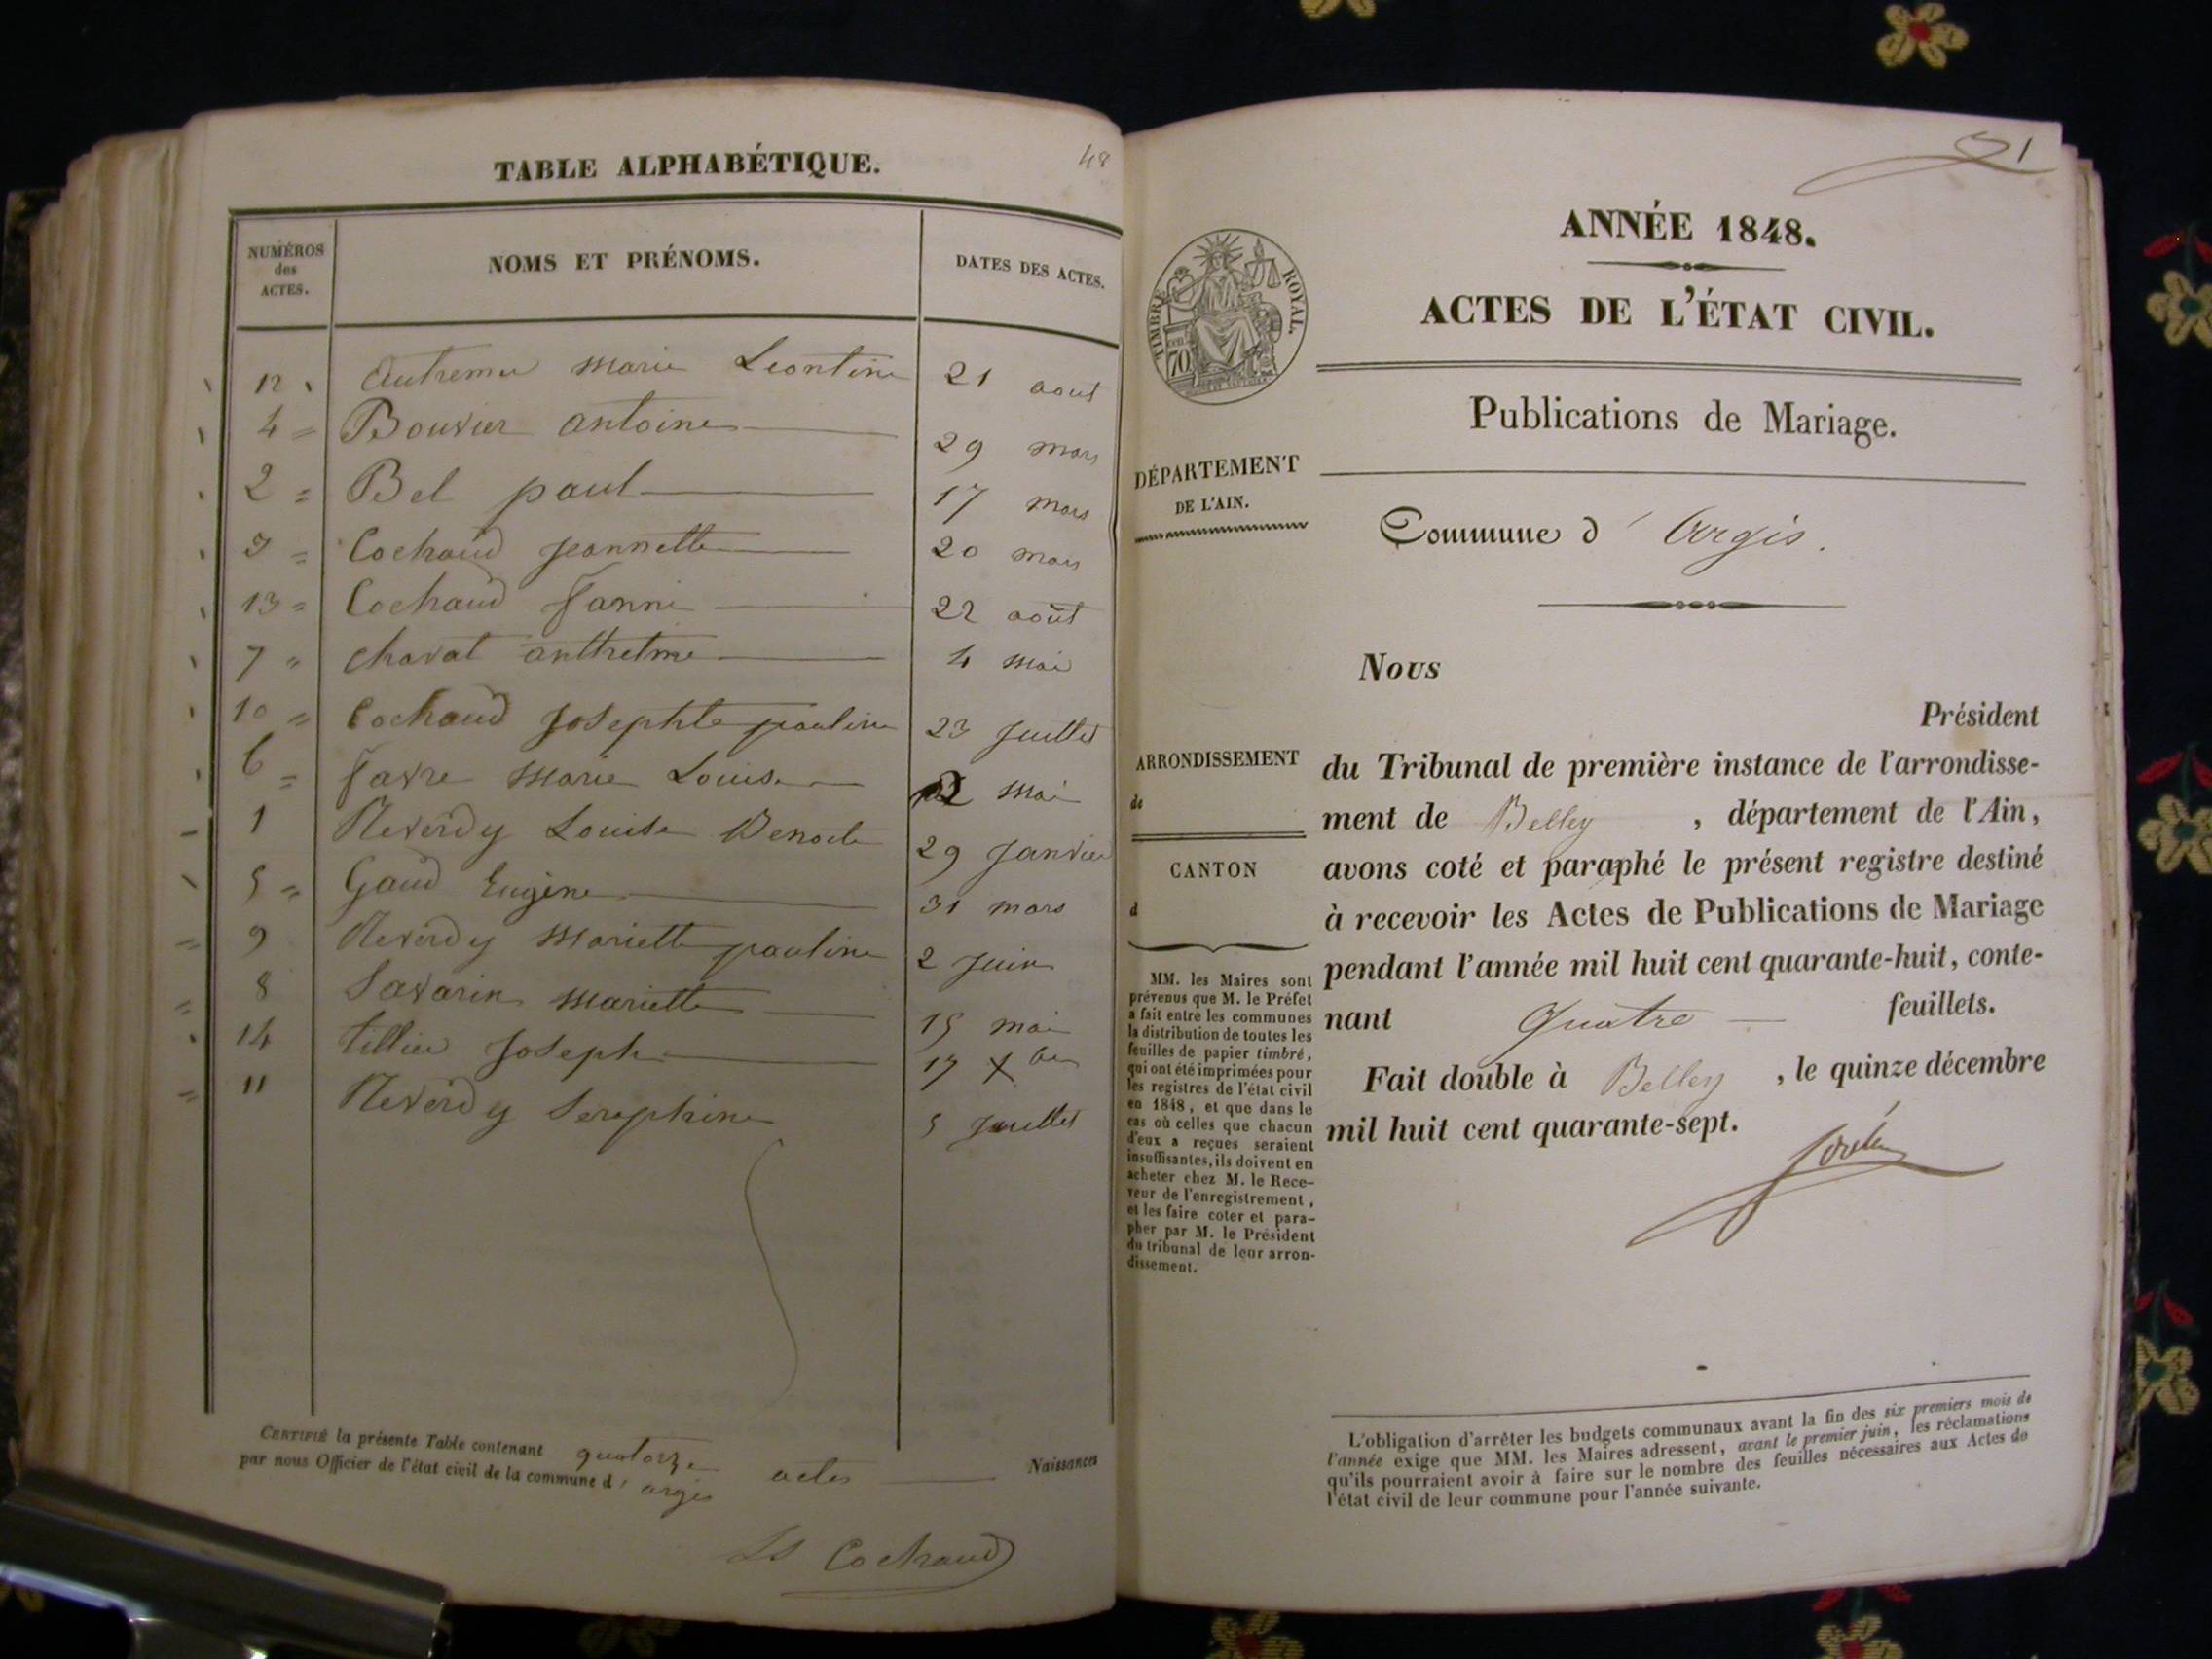 TABLE ALPHABÉTIQUE.
48
NUMÉROS
des
ACTES.
NOMS ET PRÉNOMS.
DATES DES ACTES.
12 Marie Leontine 21 aout
4 = Bouvier antoine 29 mars
2 = Bel paul 17 mars
3 = Cochaud Jeannette 20 mars
13 = Cochaud fanni 22 août
7 " Charat anthelme 4 mai
10 " Cochaud Josephte pauline 23 Juillet
6 = favre Marie Louise 2 mai
1 Reverdy Louise Benoite 29 Janvier
5 = Gaud Eugène 31 mars
9 Reverdy Mariette pauline 2 Juin
8 Savarin Mariette 15 mai
14 tillier Joseph 17 Xbre
11 Reverdy Seraphine 5 Juillet
CERTIFIÉ la présente Table contenant quatorze actes Naissances
par nous Officier de l'état civil de la commune d'argis
Ls Cochaud
1
ANNÉE 1848.
ACTES DE L'ÉTAT CIVIL.
TIMBRE ROYAL.
70 cen
Publications de Mariage.
DÉPARTEMENT
DE L'AIN.
Commune d'Argis.
Nous
Président
ARRONDISSEMENT
de
CANTON
d
du Tribunal de première instance de l'arrondisse-
ment de Belley, département de l'Ain,
avons coté et paraphé le présent registre destiné
à recevoir les Actes de Publications de Mariage
pendant l'année mil huit cent quarante-huit, conte-
nant Quatre — feuillets.
Fait double à Belley, le quinze décembre
mil huit cent quarante-sept.
MM. les Maires sont
prévenus que M. le Préfet
a fait entre les communes
la distribution de toutes les
feuilles de papier timbré,
qui ont été imprimées pour
les registres de l'état civil
en 1848, et que dans le
cas où celles que chacun
d'eux a reçues seraient
insuffisantes, ils doivent en
acheter chez M. le Rece-
veur de l'enregistrement,
et les faire coter et para-
pher par M. le Président
du tribunal de leur arron-
dissement.
L'obligation d'arrêter les budgets communaux avant la fin des six premiers mois de
l'année exige que MM. les Maires adressent, avant le premier juin, les réclamations
qu'ils pourraient avoir à faire sur le nombre des feuilles nécessaires aux Actes de
l'état civil de leur commune pour l'année suivante.